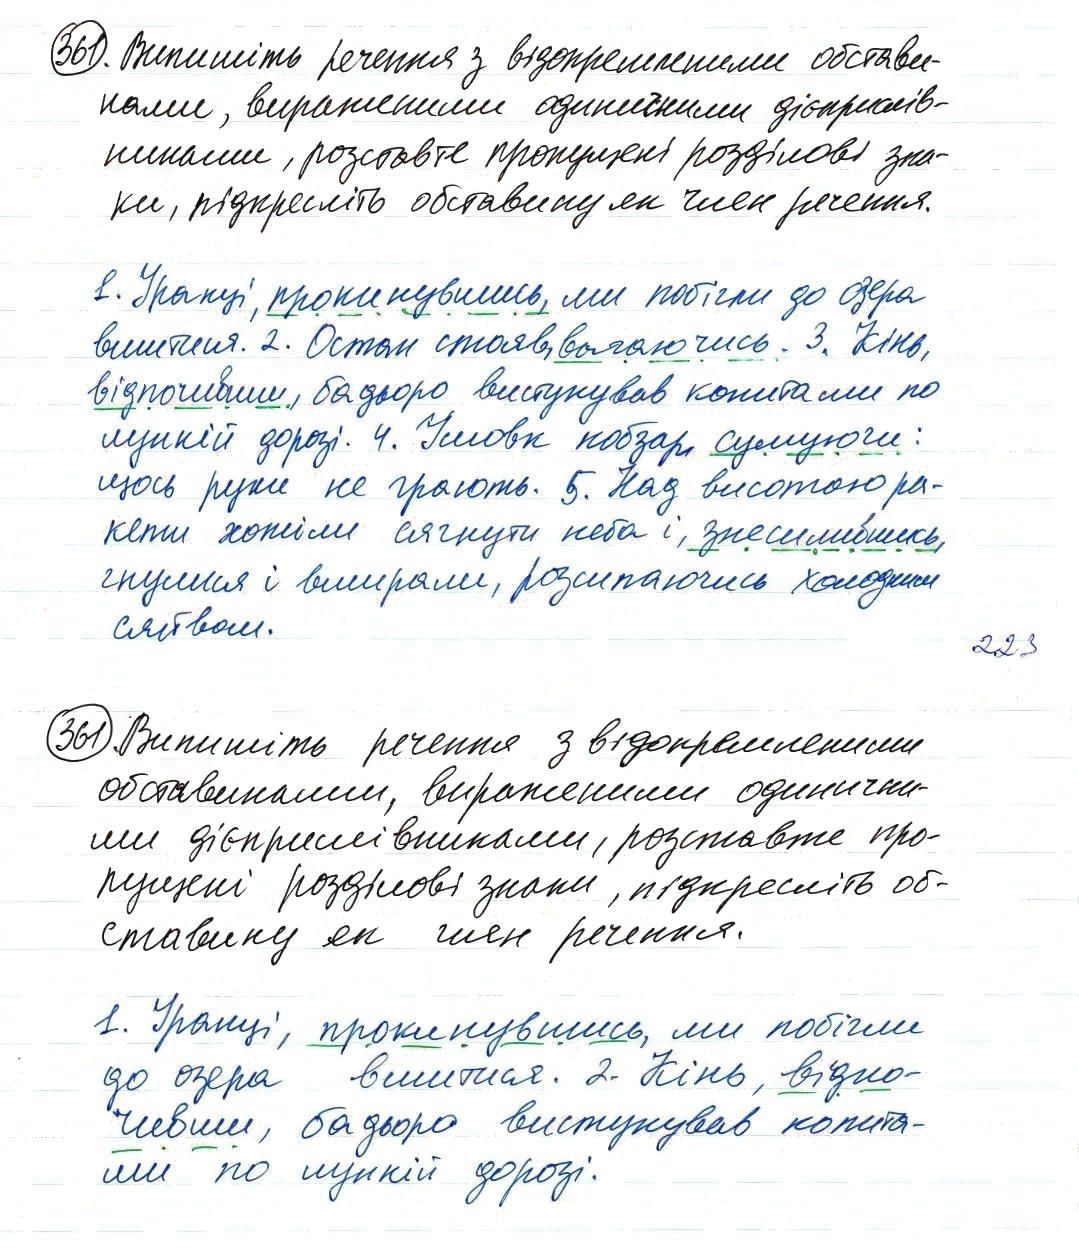 361. Випишіть речення з відокремленими обстави-
нами, вираженими одиничними дієприслів-
никами, розставте пропущені розділові зна-
ки, підкресліть обставину як член речення.
1. Уранці, прокинувшись, ми побігли до озера
вмитися. 2. Остап стояв, вагаючись. 3. Кінь,
відпочивши, бадьоро вистукував копитами по
лункій дорозі. 4. Умовк кобзар, сумуючи:
щось руки не грають. 5. Над висотою ра-
кети хотіли сягнути неба і, знесилившись,
гнулися і вмирали, розсипаючись холодним
сяйвом.
223
361. Випишіть речення з відокремленими
обставинами, вираженими одинични-
ми дієприслівниками, розставте про-
пущені розділові знаки, підкресліть об-
ставину як член речення.
1. Уранці, прокинувшись, ми побігли
до озера вмитися. 2. Кінь, відпо-
чивши, бадьоро вистукував копита-
ми по лункій дорозі.